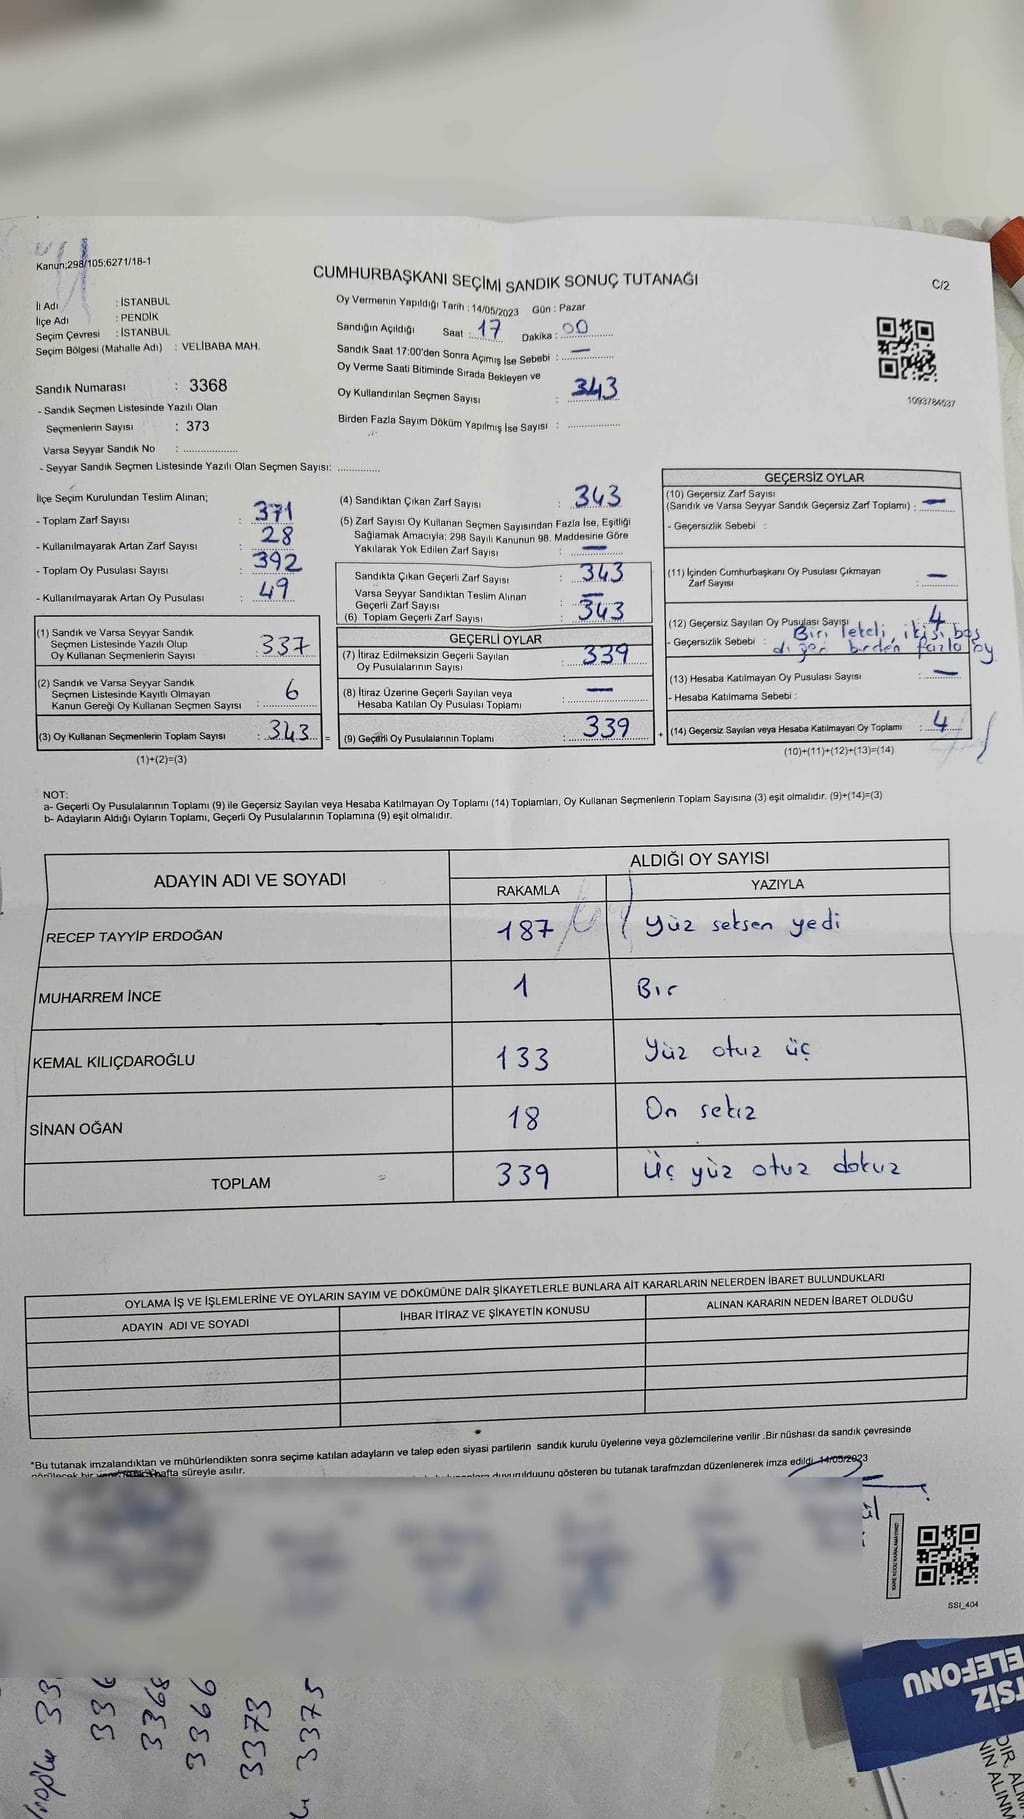 Kanun;298/105;6271/18-1
CUMHURBAŞKANI SEÇİMİ SANDIK SONUÇ TUTANAĞI
C/2
İl Adı : İSTANBUL
İlçe Adı : PENDİK
Seçim Çevresi : İSTANBUL
Seçim Bölgesi (Mahalle Adı) : VELİBABA MAH.
Sandık Numarası : 3368
- Sandık Seçmen Listesinde Yazılı Olan
Seçmenlerin Sayısı : 373
Varsa Seyyar Sandık No : ..................
- Seyyar Sandık Seçmen Listesinde Yazılı Olan Seçmen Sayısı: .............
Oy Vermenin Yapıldığı Tarih : 14/05/2023 Gün : Pazar
Sandığın Açıldığı Saat : 17 Dakika : 00
Sandık Saat 17:00'den Sonra Açımış İse Sebebi : —
Oy Verme Saati Bitiminde Sırada Bekleyen ve
Oy Kullandırılan Seçmen Sayısı : 343
Birden Fazla Sayım Döküm Yapılmış İse Sayısı : ................
1093784537
İlçe Seçim Kurulundan Teslim Alınan;
- Toplam Zarf Sayısı : 371
- Kullanılmayarak Artan Zarf Sayısı : 28
- Toplam Oy Pusulası Sayısı : 392
- Kullanılmayarak Artan Oy Pusulası : 49
(1) Sandık ve Varsa Seyyar Sandık
Seçmen Listesinde Yazılı Olup
Oy Kullanan Seçmenlerin Sayısı : 337
(2) Sandık ve Varsa Seyyar Sandık
Seçmen Listesinde Kayıtlı Olmayan
Kanun Gereği Oy Kullanan Seçmen Sayısı : 6
(3) Oy Kullanan Seçmenlerin Toplam Sayısı : 343 =
(1)+(2)=(3)
(4) Sandıktan Çıkan Zarf Sayısı : 343
(5) Zarf Sayısı Oy Kullanan Seçmen Sayısından Fazla İse, Eşitliği
Sağlamak Amacıyla; 298 Sayılı Kanunun 98. Maddesine Göre
Yakılarak Yok Edilen Zarf Sayısı : —
Sandıkta Çıkan Geçerli Zarf Sayısı : 343
Varsa Seyyar Sandıktan Teslim Alınan
Geçerli Zarf Sayısı : —
(6) Toplam Geçerli Zarf Sayısı : 343
GEÇERLİ OYLAR
(7) İtiraz Edilmeksizin Geçerli Sayılan
Oy Pusulalarının Sayısı : 339
(8) İtiraz Üzerine Geçerli Sayılan veya
Hesaba Katılan Oy Pusulası Toplamı : —
(9) Geçerli Oy Pusulalarının Toplamı : 339 +
GEÇERSİZ OYLAR
(10) Geçersiz Zarf Sayısı
(Sandık ve Varsa Seyyar Sandık Geçersiz Zarf Toplamı) : —
- Geçersizlik Sebebi :
(11) İçinden Cumhurbaşkanı Oy Pusulası Çıkmayan
Zarf Sayısı : —
(12) Geçersiz Sayılan Oy Pusulası Sayısı : 4
- Geçersizlik Sebebi : Biri lekeli, ikisi boş
diğeri birden fazla oy
(13) Hesaba Katılmayan Oy Pusulası Sayısı : —
- Hesaba Katılmama Sebebi :
(14) Geçersiz Sayılan veya Hesaba Katılmayan Oy Toplamı : 4
(10)+(11)+(12)+(13)=(14)
NOT:
a- Geçerli Oy Pusulalarının Toplamı (9) ile Geçersiz Sayılan veya Hesaba Katılmayan Oy Toplamı (14) Toplamları, Oy Kullanan Seçmenlerin Toplam Sayısına (3) eşit olmalıdır. (9)+(14)=(3)
b- Adayların Aldığı Oyların Toplamı, Geçerli Oy Pusulalarının Toplamına (9) eşit olmalıdır.
ADAYIN ADI VE SOYADI ALDIĞI OY SAYISI
RAKAMLA YAZIYLA
RECEP TAYYİP ERDOĞAN 187 Yüz seksen yedi
MUHARREM İNCE 1 Bir
KEMAL KILIÇDAROĞLU 133 Yüz otuz üç
SİNAN OĞAN 18 On sekiz
TOPLAM 339 Üç yüz otuz dokuz
OYLAMA İŞ VE İŞLEMLERİNE VE OYLARIN SAYIM VE DÖKÜMÜNE DAİR ŞİKAYETLERLE BUNLARA AİT KARARLARIN NELERDEN İBARET BULUNDUKLARI
ADAYIN ADI VE SOYADI İHBAR İTİRAZ VE ŞİKAYETİN KONUSU ALINAN KARARIN NEDEN İBARET OLDUĞU
*Bu tutanak imzalandıktan ve mühürlendikten sonra seçime katılan adayların ve talep eden siyasi partilerin sandık kurulu üyelerine veya gözlemcilerine verilir .Bir nüshası da sandık çevresinde
hafta süreyle asılır.
duyurulduunu gösteren bu tutanak tarafmzdan düzenlenerek imza edildi. 14/05/2023
SSI_404
33
336
3368
3366
3373
3375
TELEFONU